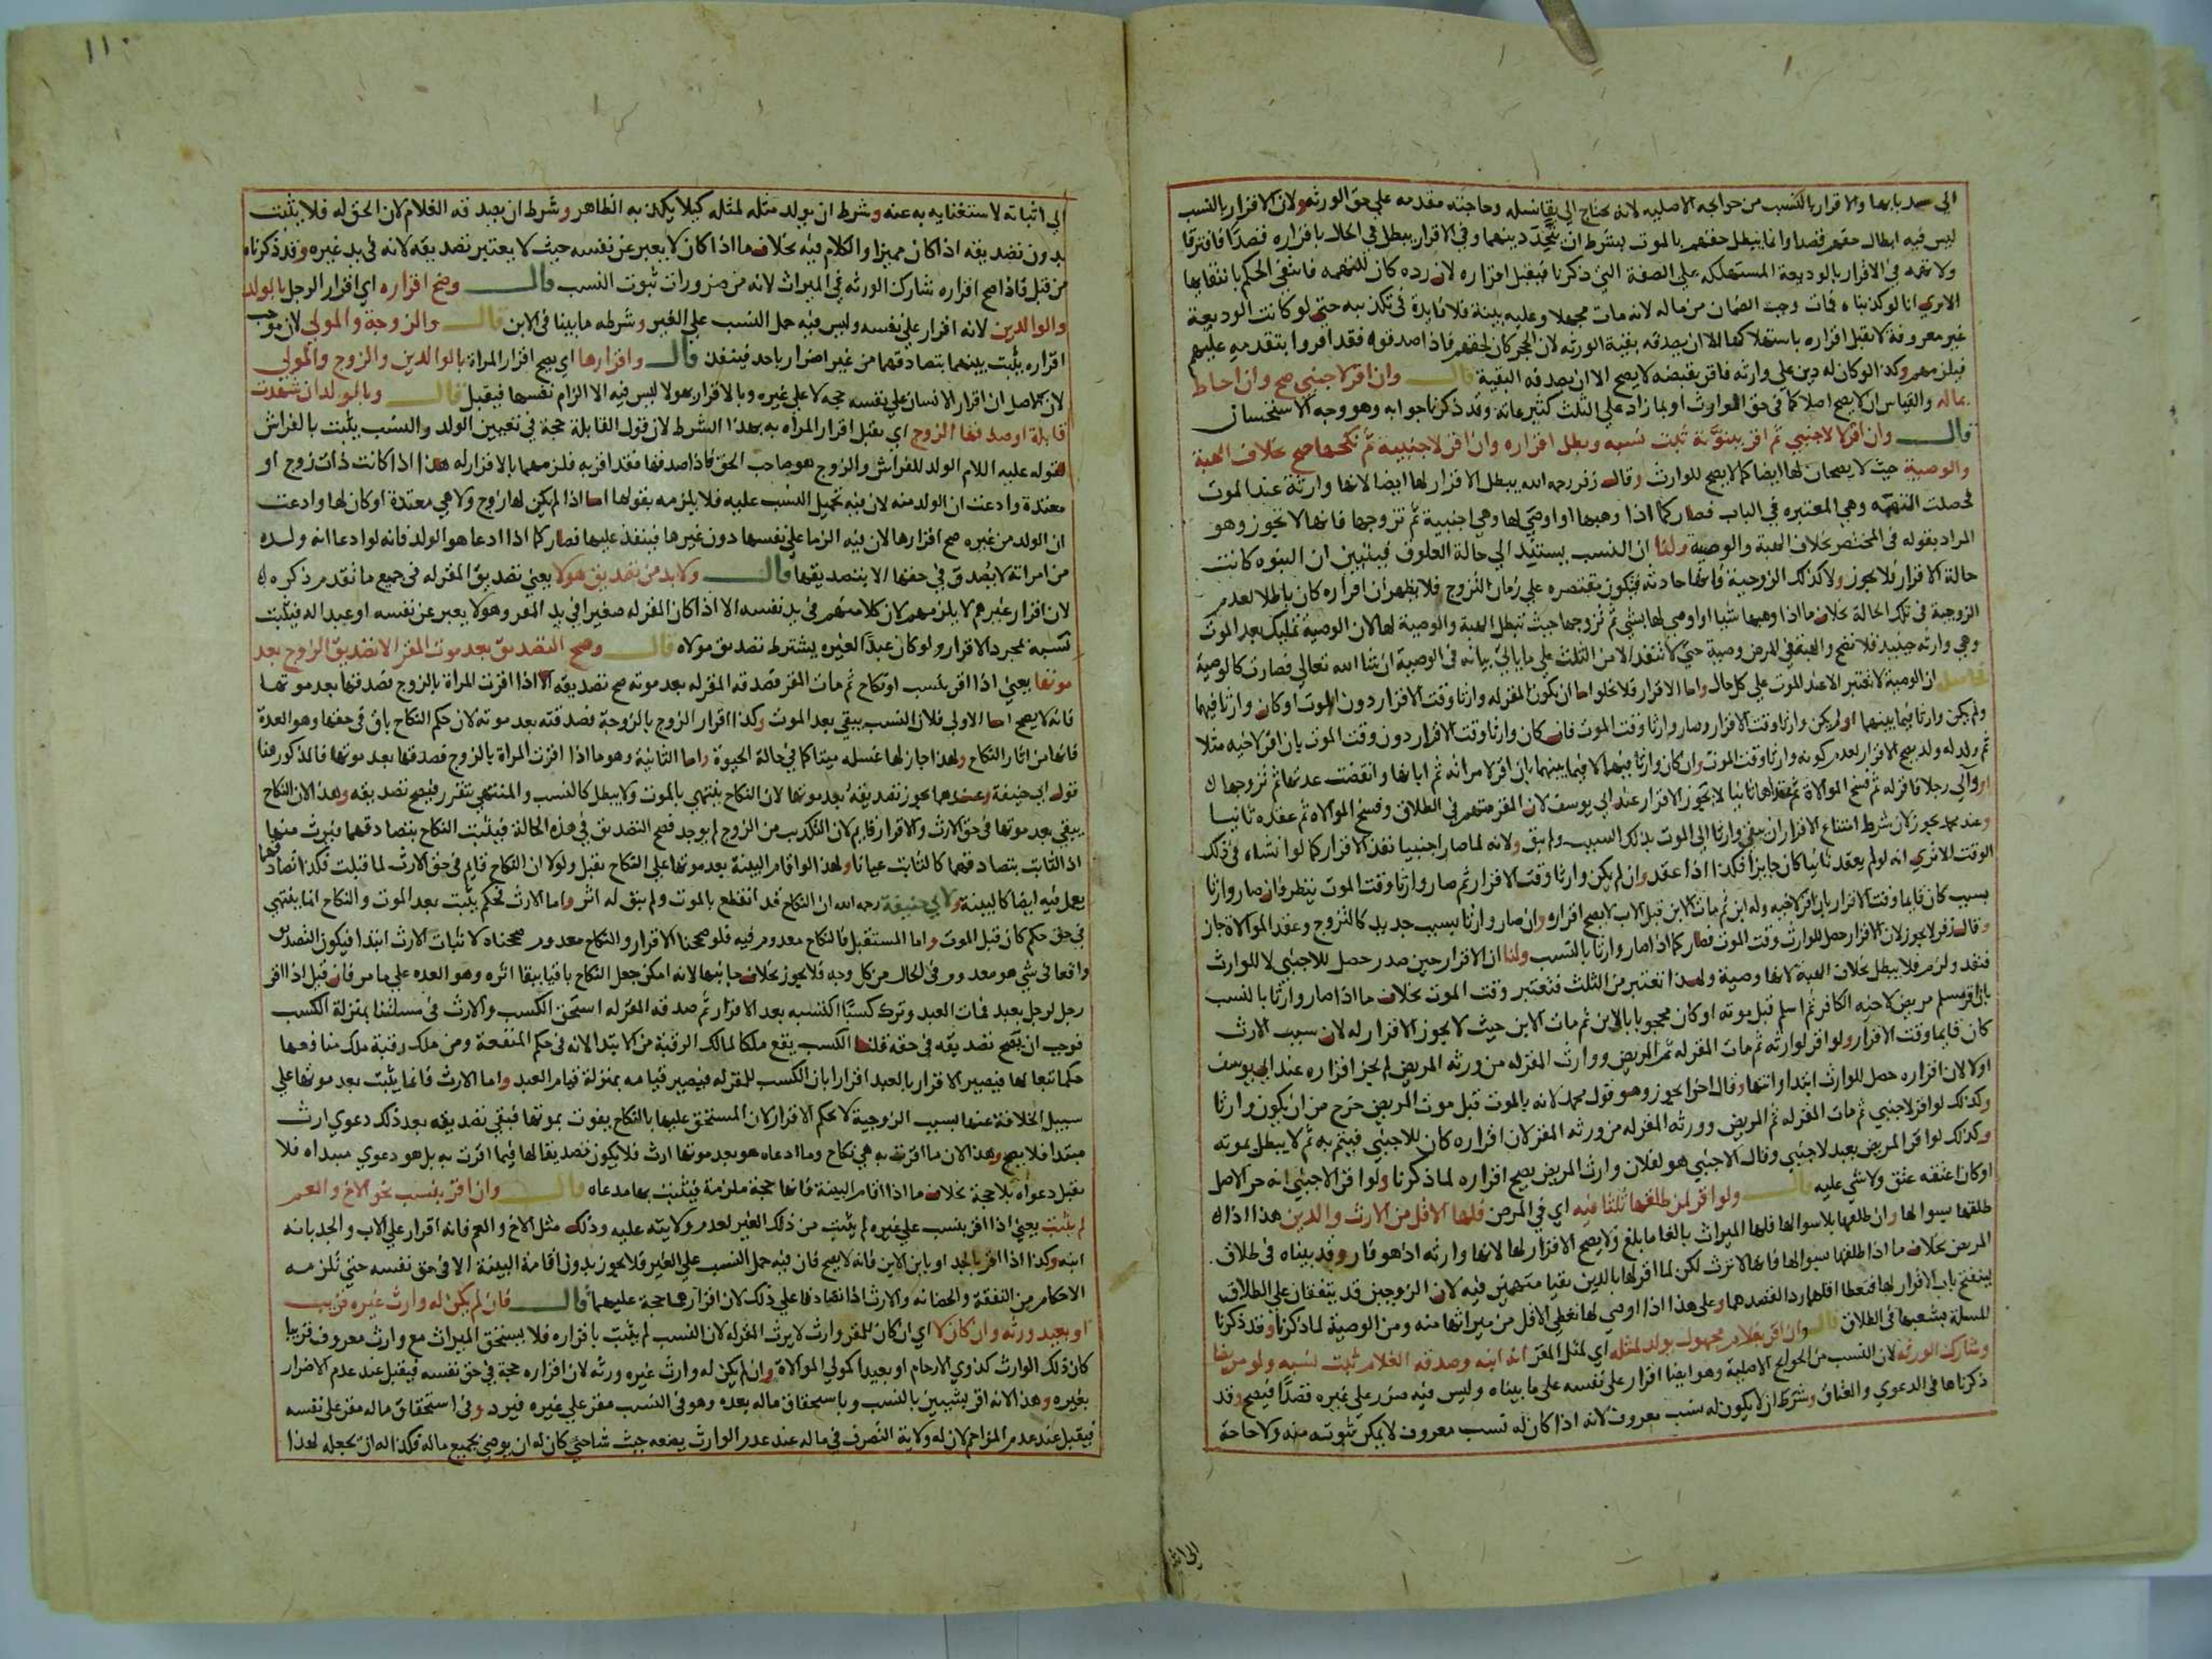 الي سد بابها والاقرار بالنسب من حوائجه الاصليه لانه يحتاج الي بقا نسله وحاجته مقدمه علي حق الورثه ولان الاقرار بالنسب
ليس فيه ابطال حقهم قصدا وانما يبطل حقهم بالموت بشرط ان يتحد دينهما وفي الاقرار يبطل في الحال باقراره قصدا فافترقا
ولا تهمه في الاقرار بالوديعة المستهلكه علي الصفة التي ذكرنا فيقبل اقراره لان رده كان للتهمه فانتفي الحكم بانتفائها
الا تري انا لو كذبناه فمات وجب الضمان من ماله لانه مات مجهلا وعليه بينة فلا فايدة في تكذيبه حتي لو كانت الوديعة
غير معروفة لا نقبل اقراره باستهلاكها الا ان يصدقه بقية الورثه لان الحجر كان لحقهم فاذا صدقوه فقد اقروا بتقدمه عليهم
فيلزمهم وكذا لو كان له دين علي وارثه فاقر بقبضه لا يصح الا ان يصدقه البقية قال وان اقر لاجنبي صح وان احاط
بماله والقياس ان لا يصح اصلا كما في حق الوارث او بما زاد علي الثلث كتبرعاته وقد ذكرنا جوابه وهو وجه الاستحسان
قال وان اقر لاجنبي ثم اقر ببنوته ثبت نسبه وبطل اقراره وان اقر لاجنبية ثم نكحها صح بخلاف الهبة
والوصية حيث لا يصحان لها ايضا كما لا يصح للوارث وقال زفر رحمه الله يبطل الاقرار لها ايضا لانها وارثة عند الموت
فحصلت التهمه وهي المعتبره في الباب فصار كما اذا وهبها او اوصي لها وهي اجنبية ثم تزوجها فانها لا تجوز وهو
المراد بقوله في المختصر بخلاف الهبة والوصية ولنا ان النسب يستند الي حالة العلوق فيتبين ان البنوه كانت
حالة الاقرار فلا يجوز ولا كذلك الزوجية فانها حادثه فتكون مقتصره علي زمان التزوج فلا يظهر ان اقراره كان باطلا لعدم
الزوجية في تلك الحالة بخلاف ما اذا وهبها شيا او اوصي لها بشي ثم تزوجها حيث تبطل الهبة والوصية لها لان الوصية تمليك بعد الموت
وهي وارثه حينيذ فلا تصح والهبة في المرض وصية حتي لا تنفذ الا من الثلث علي ما ياتي بيانه في الوصية ان شا الله تعالي فصارت كالوصية
فحاصله ان الوصية لا تعتبر الا عند الموت علي كل حال واما الاقرار فلا يخلوا اما ان يكون المقر له وارثا وقت الاقرار دون الموت او كان وارثا فيهما
ولم يكن وارثا فيما بينهما او لم يكن وارثا وقت الاقرار وصار وارثا وقت الموت فان كان وارثا وقت الاقرار دون وقت الموت بان اقر لاخيه مثلا
ثم ولد له ولد يصح الاقرار لعدم كونه وارثا وقت الموت وان كان وارثا فيهما لا فيما بينهما بان اقر لامراته ثم ابانها وانقضت عدتها ثم تزوجها
او والي رجلا فاقر له ثم فسخ الموالاة ثم عقداها ثانيا لا يجوز الاقرار عند ابي يوسف لان المقر متهم في الطلاق وفسخ الموالاه ثم عقده ثانيا
وعند محمد يجوز لان شرط امتناع الاقرار ان يبقي وارثا الي الموت بذلك السبب ولم يبق ولانه لما صار اجنبيا نفذ الاقرار كما لو انشاه في ذلك
الوقت الا تري انه لو لم يعقد ثانيا كان جايزا فكذا اذا عقد وان لم يكن وارثا وقت الاقرار ثم صار وارثا وقت الموت ينظر فان صار وارثا
بسبب كان قايما وقت الاقرار بان اقر لاخيه وله ابن ثم مات الابن قبل الاب لا يصح اقراره وان صار وارثا بسبب جديد كالتزوج وعقد الموالاة جاز
وقال زفر لا يجوز لان الاقرار حصل للوارث وقت الموت فصار كما اذا صار وارثا بالنسب ولنا ان الاقرار حين صدر حصل للاجنبي لا للوارث
فنفذ ولزم فلا يبطل بخلاف الهبة لانها وصية ولهذا تعتبر من الثلث فتعتبر وقت الموت بخلاف ما اذا صار وارثا بالنسب
بان اقر مسلم مريض لاخيه الكافر ثم اسلم قبل موته او كان محجوبا بالابن ثم مات الابن حيث لا يجوز الاقرار له لان سبب الارث
كان قايما وقت الاقرار ولو اقر لوارثه ثم مات المقر له ثم المريض ووارث المقر له من ورثه المريض لم يجز اقراره عند ابي يوسف
اولا لان اقراره حصل للوارث ابتدا وانتها وقال اخرا يجوز وهو قول محمد لانه بالموت قبل موت المريض خرج من ان يكون وارثا
وكذلك لو اقر لاجنبي ثم مات المقر له ثم المريض وورثه المقر له من ورثه المقر لان اقراره كان للاجنبي فيتم به ثم لا يبطل بموته
وكذلك لو اقر المريض بعبد لاجنبي وقال الاجنبي هو لفلان وارث المريض يصح اقراره لما ذكرنا ولو اقر الاجنبي انه حر الاصل
او كان اعتقه عتق ولا شي عليه قال ولو اقر لمن طلقها ثلثا فيه اي في المرض فلها الاقل من الارث والدين هذا اذا
طلقها بسوالها وان طلقها بلا سوالها فلها الميراث بالغا ما بلغ ولا يصح الاقرار لها لانها وارثه اذ هو فار وقد بيناه في طلاق
المريض بخلاف ما اذا طلقها بسوالها فانها لا ترث لكن لما اقر لها بالدين بقيا متهمين فيه لان الزوجين قد يتفقان علي الطلاق
لينفتح باب الاقرار لها فتعطا اقلهما ردا لقصدهما وعلي هذا اذا اوصي لها تعطي الاقل من ميراثها منه ومن الوصية لما ذكرنا وقد ذكرنا
المسلة بشعبها في الطلاق قال وان اقر بغلام مجهول يولد لمثله اي لمثل المقر انه ابنه وصدقه الغلام ثبت نسبه ولو مريضا
وشارك الورثه لان النسب من الحوايج الاصلية وهو ايضا اقرار علي نفسه علي ما بيناه وليس فيه ضرر علي غيره قصدا فيصح وقد
ذكرناها في الدعوي والعتاق وشرط ان لا يكون له نسب معروف لانه اذا كان له نسب معروف لا يمكن ثبوته منه ولا حاجة
الي اثبا
١١٠
الي اثباته لاستغنايه به عنه وشرط ان يولد مثله لمثله كيلا يكذبه الظاهر وشرط ان يصدقه الغلام لان الحق له فلا يثبت
بدون تصديقه اذا كان مميزا والكلام فيه بخلاف ما اذا كان لا يعبر عن نفسه حيث لا يعتبر تصديقه لانه في يد غيره وقد ذكرناه
من قبل فاذا صح اقراره شارك الورثه في الميراث لانه من ضرورات ثبوت النسب قال وصح اقراره اي اقرار الرجل بالولد
والوالدين لانه اقرار علي نفسه وليس فيه حمل النسب علي الغير وشرطه ما بينا في الابن قال والزوجة والمولي لان موجب
اقراره يثبت بينهما بتصادقهما من غير اضرار باحد فينفذ قال واقرارها اي يصح اقرار المراة بالوالدين والزوج والمولي
لان الاصل ان اقرار الانسان علي نفسه حجه لا علي غيره وبالاقرار بهولا ليس فيه الا الزام نفسها فيقبل قال وبالولد ان شهدت
قابلة او صدقها الزوج اي يقبل اقرار المراه به بهذا الشرط لان قول القابلة حجة في تعيين الولد والنسب يثبت بالفراش
لقوله عليه السلام الولد للفراش والزوج هو صاحب الحق فاذا صدقها فقد اقر به فلزمهما بالاقرار له هذا اذا كانت ذات زوج او
معتدة وادعت ان الولد منه لان فيه تحميل النسب عليه فلا يلزمه بقولها اما اذا لم يكن لها زوج ولا هي معتدة او كان لها وادعت
ان الولد من غيره صح اقرارها لان فيه الزاما علي نفسها دون غيرها فينفذ عليها فصار كما اذا ادعا هو الولد فانه لو ادعا انه ولده
من امراته لا يصدق في حقها الا بتصديقها قال ولا بد من تصديق هولا يعني تصديق المقر له في جميع ما تقدم ذكره
لان اقرار غيرهم لا يلزمهم لان كلا منهم في يد نفسه الا اذا كان المقر له صغيرا في يد المقر وهو لا يعبر عن نفسه او عبدا له فيثبت
نسبه بمجرد الاقرار ولو كان عبدا لغيره يشترط تصديق مولاه قال وصح التصديق بعد موت المقر الا تصديق الزوج بعد
موتها يعني اذا اقر بنسب او نكاح ثم مات المقر فصدقه المقر له بعد موته صح تصديقه الا اذا اقرت المراة بالزوج فصدقها بعد موتها
فانه لا يصح اما الاولي فلان النسب يبقي بعد الموت وكذا اقرار الزوج بالزوجة فصدقته بعد موته لان حكم النكاح باق في حقها وهو العدة
فانها من اثار النكاح ولهذا جاز لها غسله ميتا كما في حالة الحيوة واما الثانية وهو ما اذا اقرت المراة بالزوج فصدقها بعد موتها فالمذكور هنا
قول ابي حنيفة وعندهما يجوز تصديقه بعد موتها لان النكاح ينتهي بالموت ولا يبطل كالنسب والمنتهي متقرر فيصح تصديقه وهذا لان النكاح
يبقي بعد موتها في حق الارث والاقرار قايم لان التكذيب من الزوج لم يوجد فصح التصديق في هذه الحالة فيثبت النكاح بتصادقهما فيرث منها
اذ الثابت بتصادقهما كالثابت عيانا ولهذا لو اقام البينة بعد موتها علي النكاح يقبل ولولا ان النكاح قايم في حق الارث لما قبلت فكذا تصادقهما
يعمل فيه ايضا كالبينة ولابي حنيفة رحمه الله ان النكاح قد انقطع بالموت ولم يبق له اثر واما الارث فحكم يثبت بعد الموت والنكاح انما ينتهي
في حق حكم كان قبل الموت واما المستقبل فالنكاح معدوم فيه فلو صححنا الاقرار والنكاح معدوم صححناه لاثبات الارث ابتدا فيكون التصديق
واقعا في شي هو معدوم في الحال من كل وجه فلا يجوز بخلاف جانبها لانه امكن جعل النكاح باقيا ببقا اثره وهو العده علي ما مر فان قيل اذا اقر
رجل لرجل بعبد فمات العبد وترك كسبا اكتسبه بعد الاقرار ثم صدقه المقر له استحق الكسب والارث في مسلتنا بمنزلة الكسب
فوجب ان يصح تصديقه في حقه قلنا الكسب يقع ملكا لمالك الرقبة من الابتدا لانه في حكم المنفعة ومن ملك رقبة ملك منافعها
حكما تبعا لها فيصير الاقرار بالعبد اقرارا بان الكسب للمقر له فيصير قيامه بمنزلة قيام العبد واما الارث فانما يثبت بعد موتها علي
سبيل الخلافة عنها بسبب الزوجية لا بحكم الاقرار لان المستحق عليها بالنكاح يفوت بموتها فبقي تصديقه بعد ذلك دعوي ارث
مبتدا فلا يصح وهذا لان ما اقرت به هي نكاح وما ادعاه هو بعد موتها ارث فلا يكون تصديقا لها فيما اقرت به بل هو دعوي مبتداه فلا
يقبل دعواه بلا حجة بخلاف ما اذا اقام البينة فانها حجة ملزمة فيثبت بها مدعاه قال وان اقر بنسب نحو الاخ والعم
لم يثبت يعني اذا اقر بنسب علي غيره لم يثبت من ذلك الغير لعدم ولايته عليه وذلك مثل الاخ والعم فانه اقرار علي الاب والجد بانه
ابنه وكذا اذا اقر بالجد او بابن الابن فانه لا يصح فان فيه حمل النسب علي الغير فلا يجوز بدون اقامة البينة الا في حق نفسه حتي تلزمه
الاحكام من النفقة والحضانه والارث اذا تصادقا علي ذلك لان اقرارهما حجة عليهما قال فان لم يكن له وارث غيره قريب
او بعيد ورثه وان كان لا اي ان كان للمقر وارث لا يرث المقر له لان النسب لم يثبت باقراره فلا يستحق الميراث مع وارث معروف قريبا
كان ذلك الوارث كذوي الارحام او بعيدا كمولي الموالاة وان لم يكن له وارث غيره ورثه لان اقراره حجة في حق نفسه فيقبل عند عدم الاضرار
بغيره وهذا لانه اقر بشيين بالنسب وباستحقاق ماله بعده وهو في النسب مقر علي غيره فيرد وفي استحقاق ماله مقر علي نفسه
فيقبل عند عدم المزاحم لان له ولاية التصرف في ماله عند عدم الوارث يضعه حيث شا حتي كان له ان يوصي بجميع ماله فكذا له ان يجعله لهذا